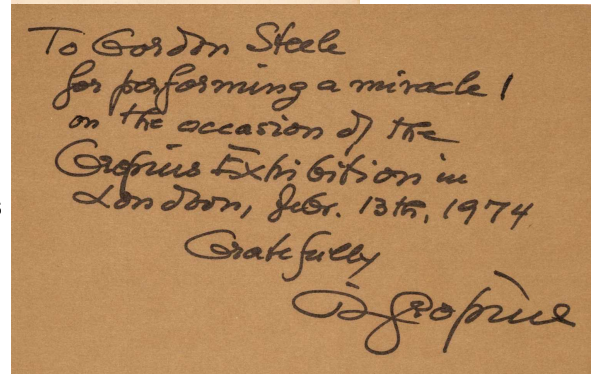 To Gordon Steele
for performing a miracle!
on the occasion of the
Gropius Exhibition in
London, febr. 13th, 1974
Gratefully
Gropius